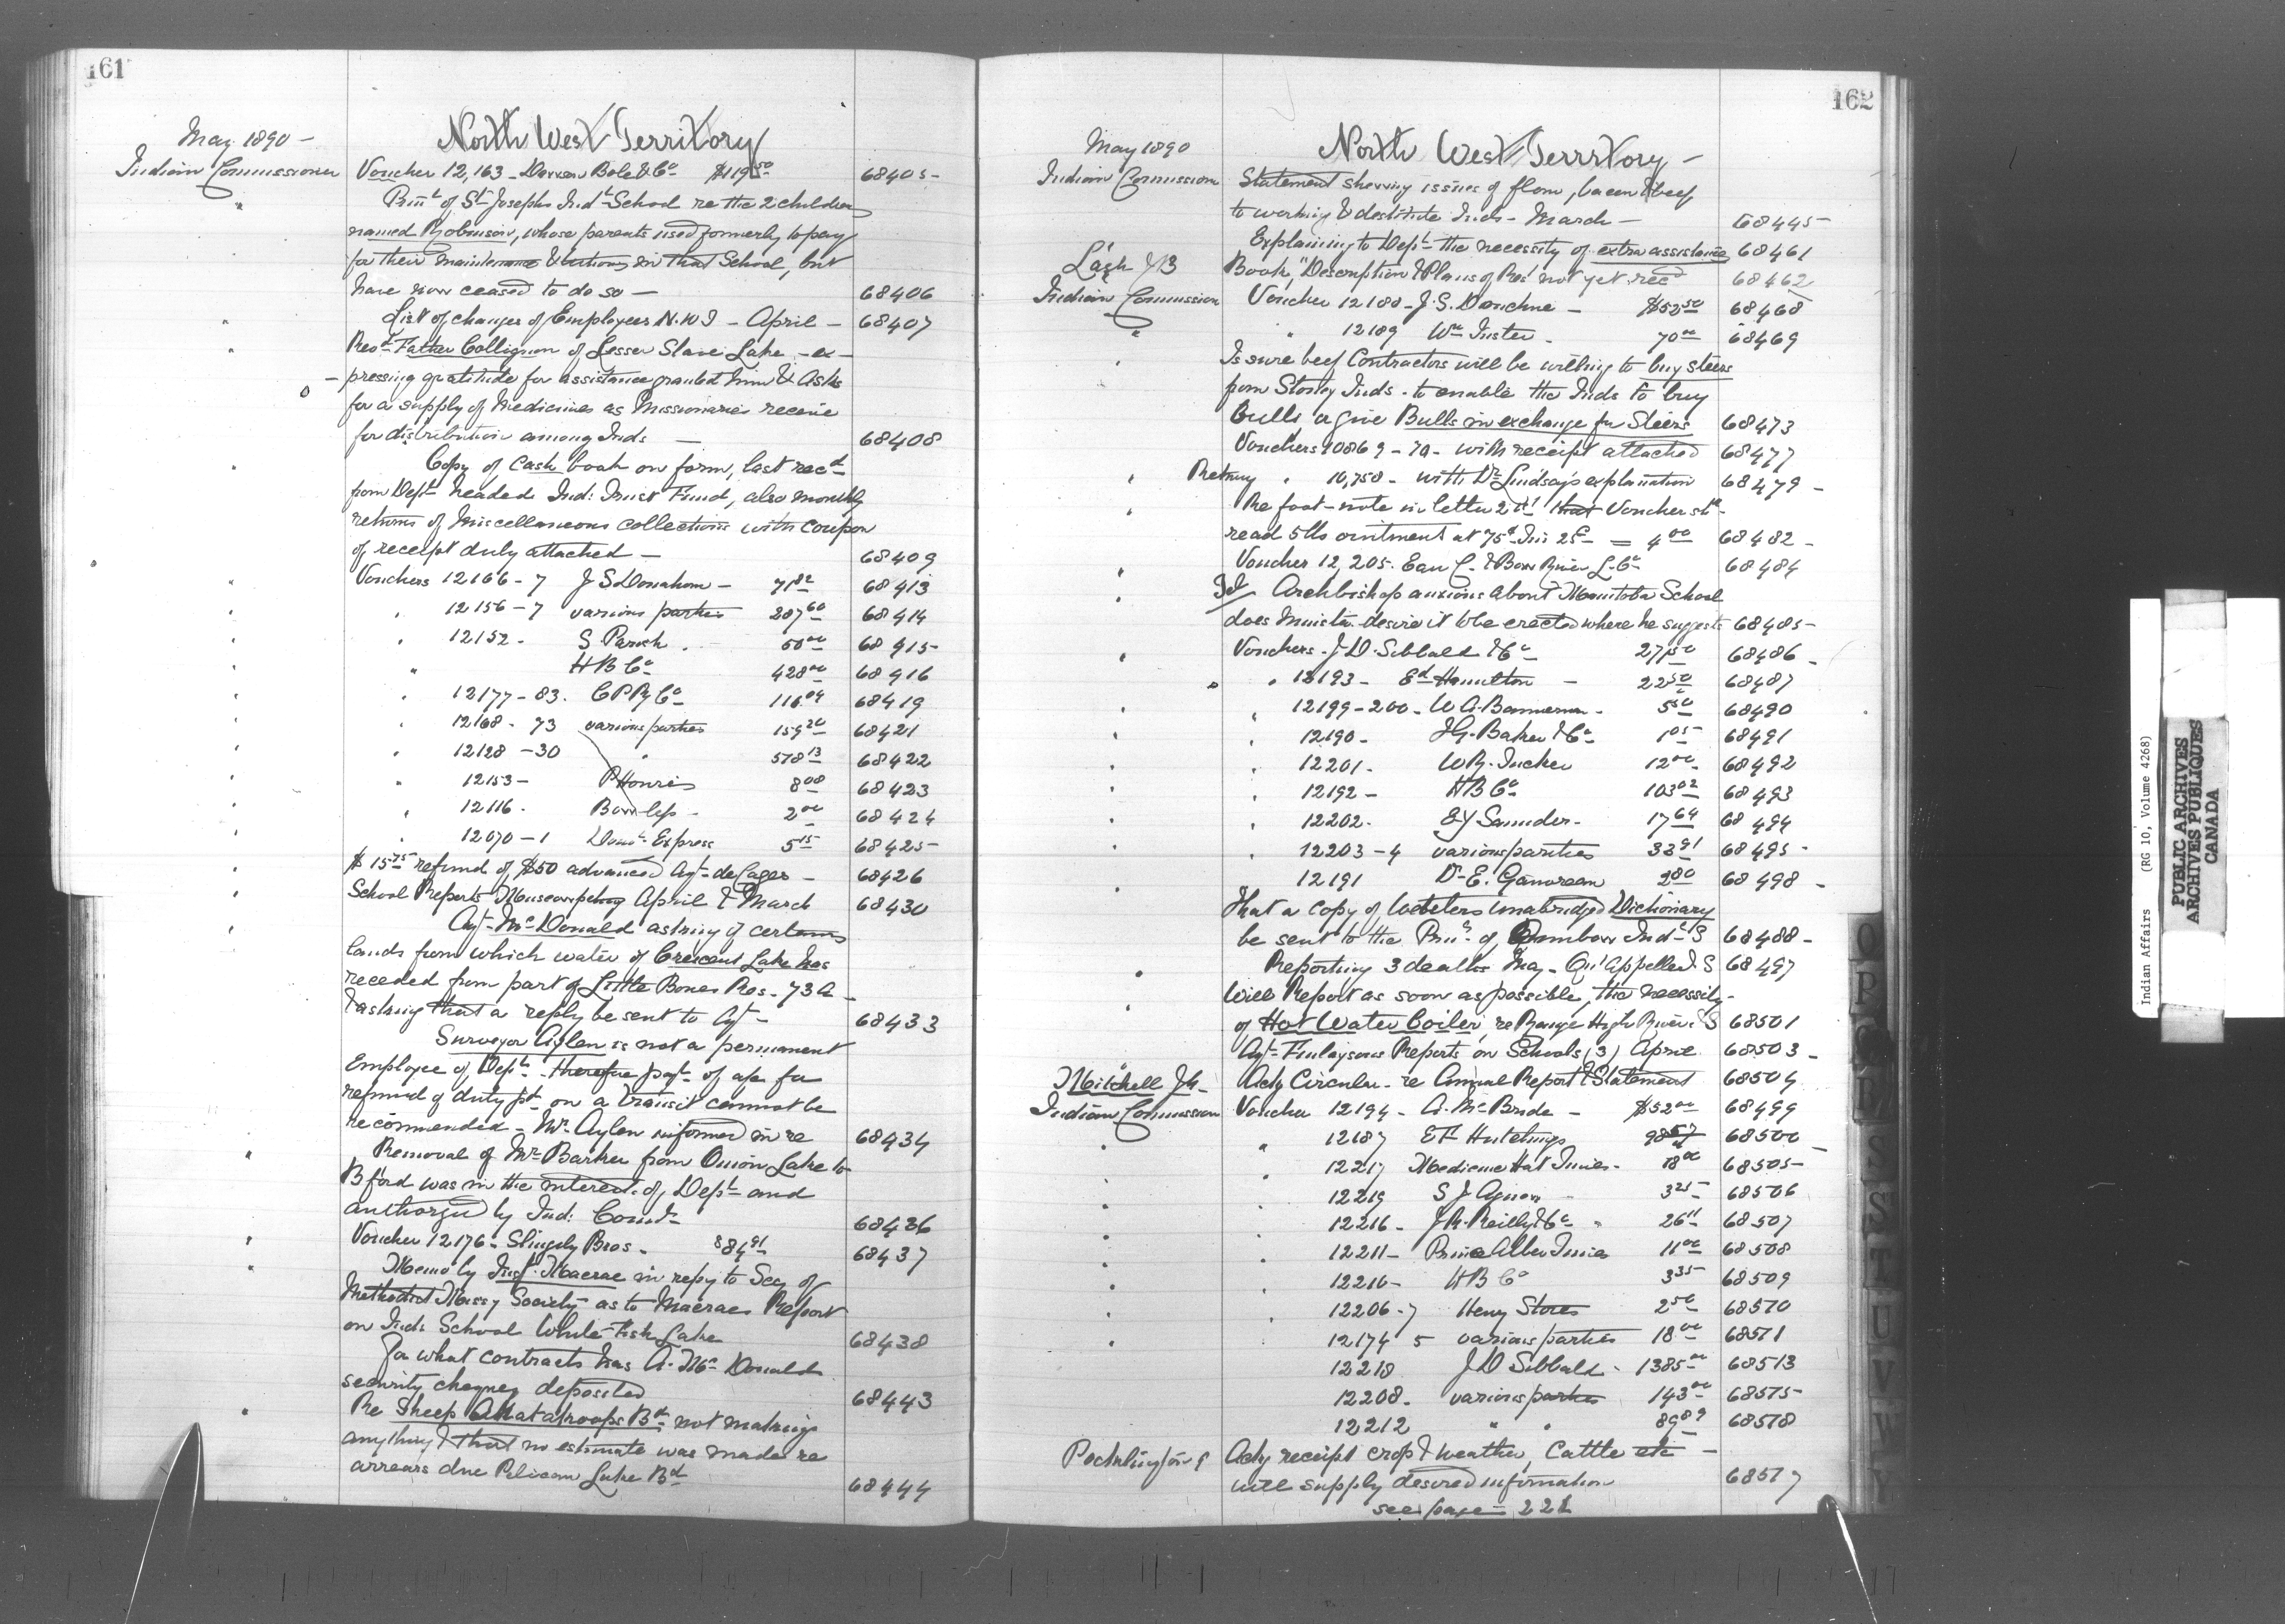 161
North West Territory
May 1890 -
Indian Commissioner Voucher 12,163 - Dawson Bole & Co $119.50 68405 -
" Prin. of St Josephs Indl School re the 2 children
named Robinson, whose parents used formerly to pay
for their maintenance & tuitions in that School, but
have now ceased to do so - 68406
" List of changes of Employees N.W.T - April - 68407
" Revd Father Collignon of Lesser Slave Lake - ex -
- pressing gratitude for assistance granted him & asks
for a supply of medicines as Missionaries receive
for distribution among Inds - 68408
" Copy of Cash book on form, last recd
from Dept headed Ind: Trust Fund, also monthly
returns of Miscellaneous collections with coupon
of receipt duly attached - 68409
" Vouchers 12166-7 J S Donahom - 71.82 68413
" " 12156-7 various parties 287.60 68414
" " 12152 - S Parish . 50.00 68415 -
" " H B Co 428.00 68416
" " 12177-83. C P Ry Co 116.04 68419
" " 12168-73 various parties 159.20 68421
" " 12128-30 " 578.13 68422
" " 12153 - P Hourie 8.00 68423
" " 12116 - 2.00 68424
" " 12070-1 Domn Express 5.15 68425 -
" $15.75 refund of $50 advanced Agt de Cazes - 68426
" School Reports Muscowpetung April & March 68430
" Agt McDonald asking if certain
lands from which water of Crescent Lake has
receded from part of Little Bones Res - 73A -
& asking that a reply be sent to Agt - 68433
Surveyor Aylen is not a permanent
Employee of Dept - therefore payt of a/c for
refund of duty pd on a transit cannot be
recommended - Mr Aylen informed in re 68434
" Removal of Mr Barker from Onion Lake to
Bford was in the interest of Dept and
authorized by Ind: Comr 68436
" Voucher 12176 - Slingsby Bros - $84.91 68437
" Memo by Insp. Macrae in reply to Secy of
Methodist Missy Society as to Macraes Report
on Ind: School White Fish Lake 68438
For what contracts has A. McDonald
security cheques deposited 68443
" Re Sheep Attakakoops Bd not making
anything & that no estimate was made re
arrears due Pelican Lake Bd 68444
162
North West Terrstory -
May 1890
Indian Commission Statement shewing issues of flour, bacon & beef
to working & destitute Inds - March - 68445 -
Explaining to Dept the necessity of extra assistance 68461
Lash J B Book, "Description & Plans of Res' not yet recd 68462
Indian Commission Voucher 12180 - J.S. Donahue - $52.50 68468
" " 12189 Wm - 70.00 68469
" Is sure beef Contractors will be willing to buy steers
from Stoney Inds - to enable the Inds to buy
bulls or give Bulls in exchange for Steers 68473
Vouchers 10869-70 - with receipt attached 68477
" Returng " 10,750 - with Dr Lindsay's explanation 68479 -
" Re foot-note in letter that Voucher shd
read 5 lbs ointment at 75c = 4.00 68482 -
" Voucher 12,205. Can C. & Bow River L. Co 68484
" Tel Archbishop anxious about Manitoba School
does Minister desire it to be erected where he suggests 68485 -
" Vouchers - J.D. Sibbald & Co 271.50 68486 -
" " 12193 - Ed Hamilton - 22.50 68487
" " 12199-200 - W A. Bannerman - 5.50 68490
" " 12190 - I G. Baker & Co 1.05 68491
" " 12201 - W R. Tucker 12.00 68492
" " 12192 - H B Co 103.02 68493
" " 12202 - E Y Saunder - 17.64 68494
" " 12203-4 various parties 33.91 68495 -
" 12191 Dr E. Ganvreau 2.80 68498 -
That a copy of Websters unabridged Dictionary
be sent to the Prin. of Dunbow Indl S 68488 -
" Reporting 3 deaths May - Qu'Appelle I. S 68497
" Will Report as soon as possible, the necessity -
of Hot Water boiler, re Range High River I. S 68501
Agt Finlaysons Reports on Schools (3) April 68503 -
Mitchell J H - Ackg Circular - re Annual Report & Statement 68504
Indian Commission Voucher 12194 - A. McBride - $52.00 68499
" " 12187 E F Hutchings 98.57 68500
" 12217 Medicine Hat Times - 18.00 68505 -
" " 12219 S J Agnew - 3.25 68506
" 12216 - J R. Reilly & Co " 26.11 68507
" " 12211 - Prince Albert Times 11.00 68508
" " 12216 - H B Co 3.35 68509
" " 12206-7 Henry Stores 2.50 68510
" " 12174 5 various parties 18.00 68511
12218 J D Sibbald - 1385.00 68513
12208 - various parties 143.00 68515 -
12212 " " 89.89 68518
Pocklington Ackg receipt crop & weather, Cattle etc -
will supply desired information 68517
see page - 221
O
P
Q
R
S
S
T
U
V
W
Y
Indian Affairs (RG 10, Volume 4268)
PUBLIC ARCHIVES
ARCHIVES PUBLIQUES
CANADA